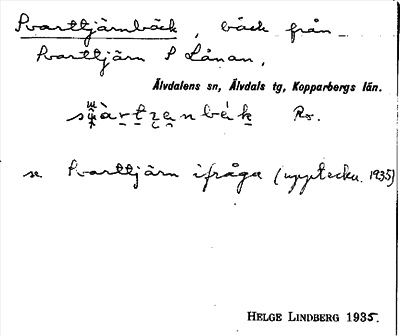 Svarttjärnbäck, bäck från
Svarttjärn S Lånan,
Älvdalens sn, Älvdals tg, Kopparbergs län.
Ro.
se Svarttjärn ifråga (uppteckn. 1935)
HELGE LINDBERG 1935.